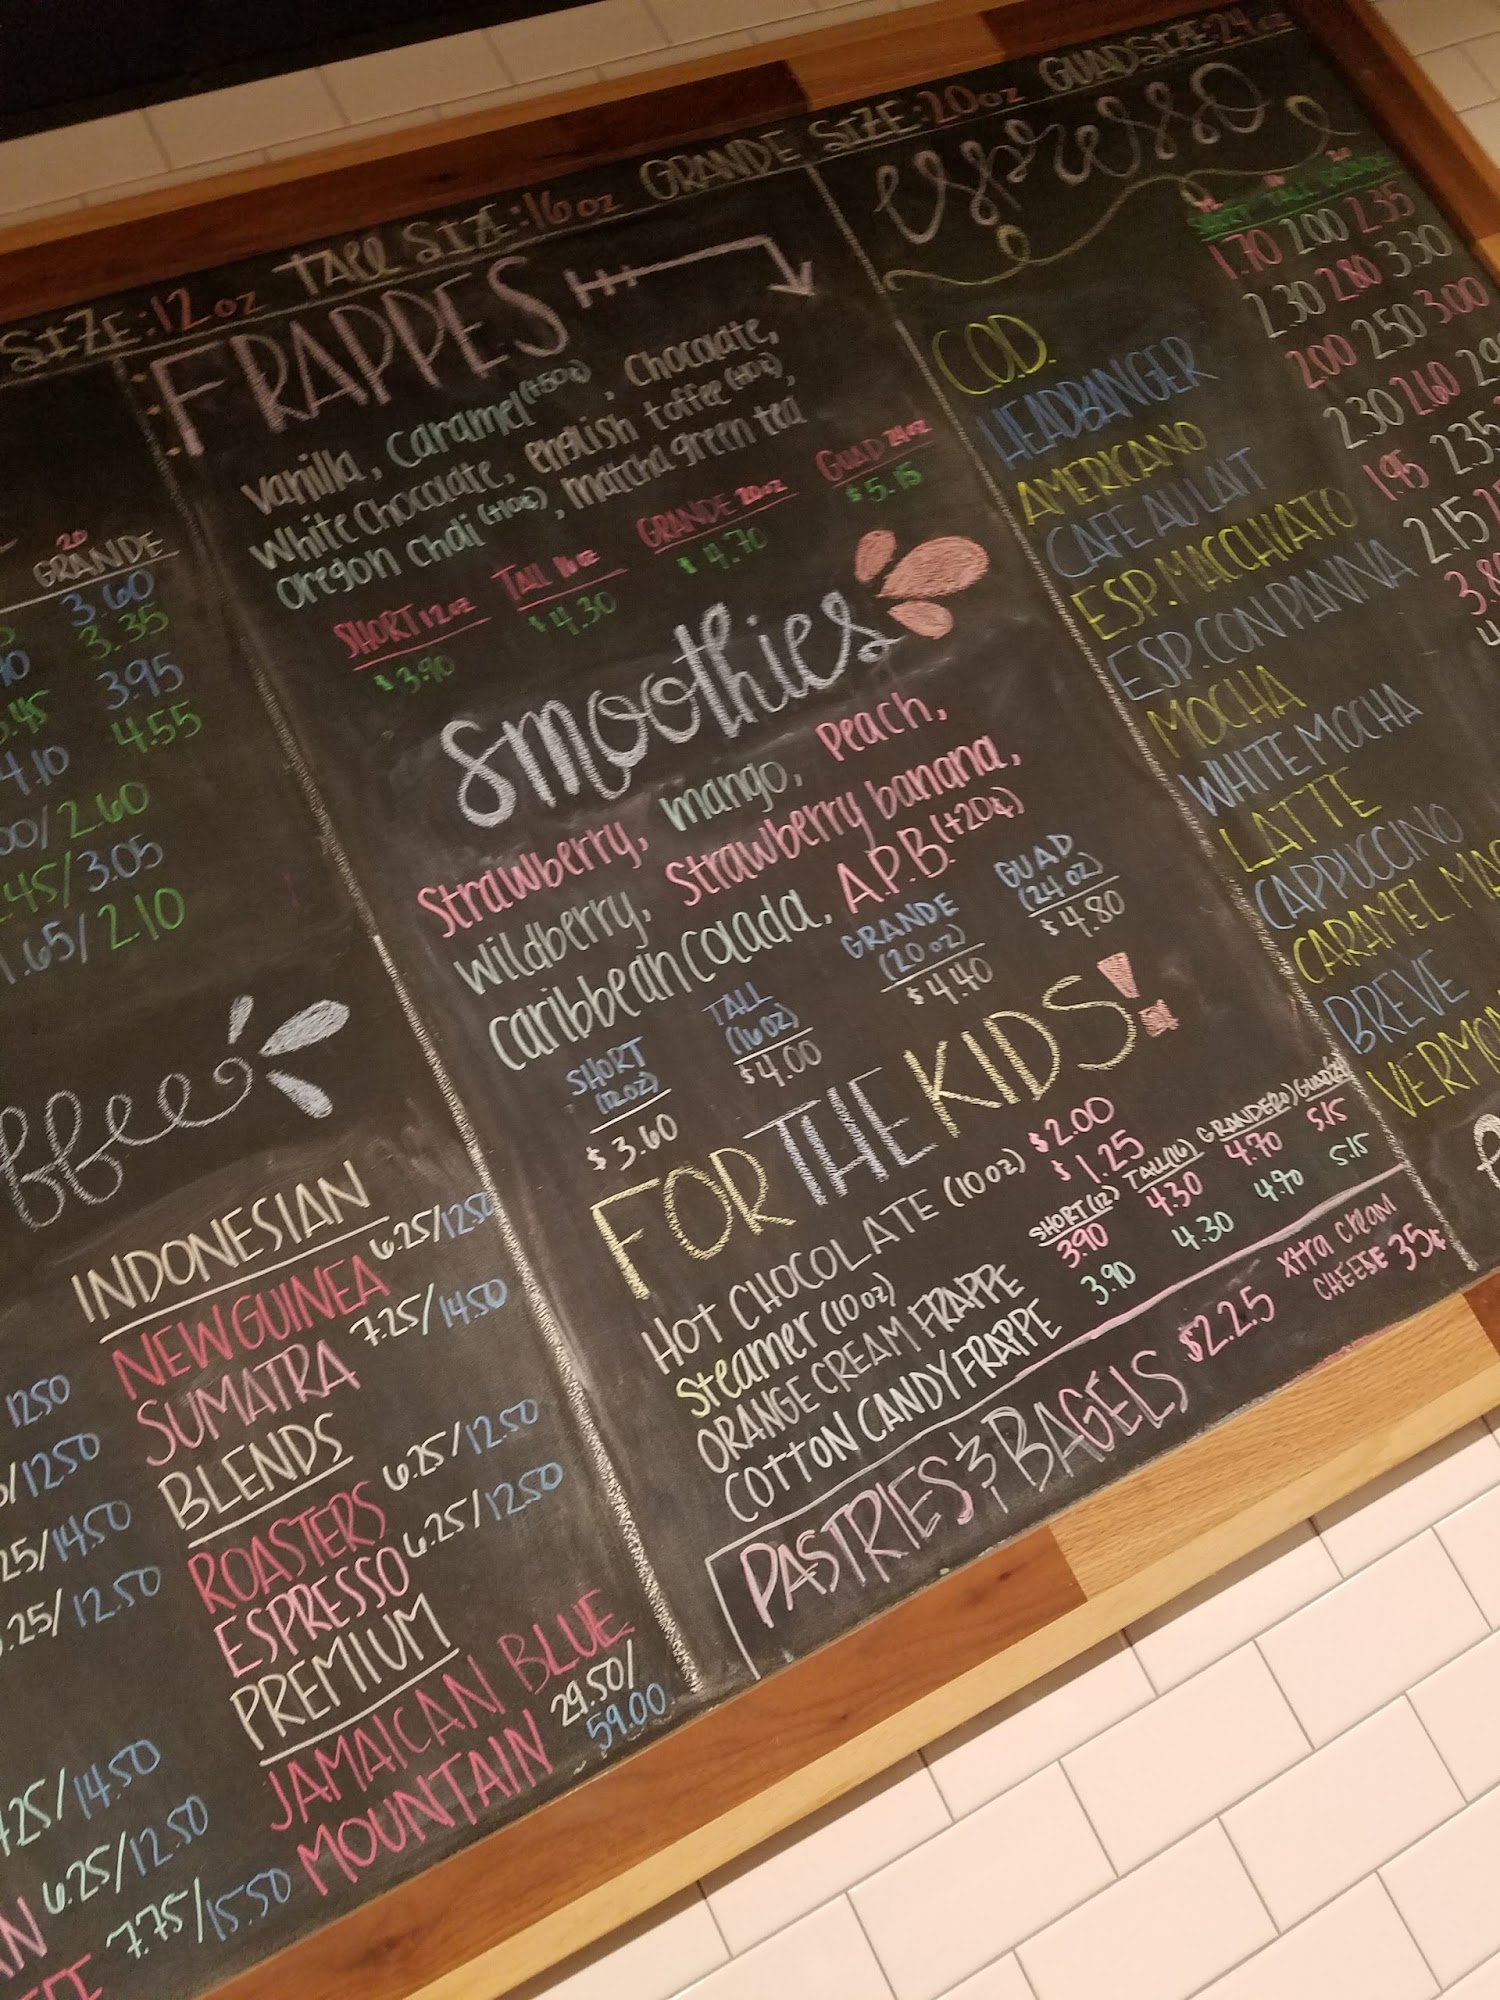 SIZE: 12 oz TALL SIZE: 16 oz GRANDE SIZE: 20 oz GUAD SIZE: 24 oz
20
GRANDE
3.60
3.35
3.95
4.55
4.10
2.60
3.05
1.65/2.10
INDONESIAN
NEW GUINEA 6.25/12.50
SUMATRA 7.25/14.50
BLENDS
ROASTERS 6.25/12.50
ESPRESSO 6.25/12.50
PREMIUM
JAMAICAN BLUE
MOUNTAIN 29.50/
59.00
12.50
12.50
14.50
12.50
14.50
6.25/12.50
7.75/15.50
FRAPPES
Vanilla, Caramel (+50¢), Chocolate,
White Chocolate, english toffee (+10¢),
oregon chai (+10¢), matcha green tea
SHORT 12oz TALL 16oz GRANDE 20oz GUAD 24oz
$3.90 $4.30 $4.70 $5.15
Smoothies
Strawberry, mango, peach,
wildberry, strawberry banana,
caribbean colada, A.P.B. (+20¢)
SHORT (12oz) TALL (16oz) GRANDE (20oz) GUAD (24oz)
$3.60 $4.00 $4.40 $4.80
FOR THE KIDS!
HOT CHOCOLATE (10oz) $2.00
Steamer (10oz) $1.25
SHORT (12) TALL (16) GRANDE (20) GUAD (24)
ORANGE CREAM FRAPPE 3.90 4.30 4.70 5.15
COTTON CANDY FRAPPE 3.90 4.30 4.70 5.15
PASTRIES & BAGELS $2.25 xtra cream
CHEESE 35¢
espresso
SHORT TALL GRANDE
C.O.D. 1.70 2.00 2.35
HEADBANGER 2.30 2.80 3.30
AMERICANO 2.00 2.50 3.00
CAFE AU LAIT 2.30 2.60
ESP. MACCHIATO 1.95 2.35
ESP. CON PANNA 2.15
MOCHA
WHITE MOCHA
LATTE
CAPPUCCINO
CARAMEL
BREVE